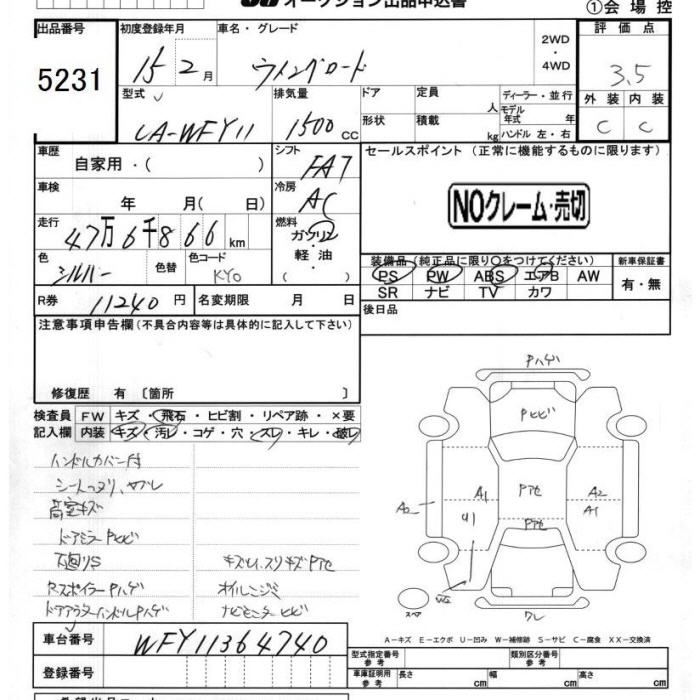 オークション出品申込書
①会場控
出品番号
5231
初度登録年月
15 2月
車名・グレード
ウイングロード
2WD
・
4WD
評価点
3.5
外装 内装
C C
型式
UA-WFY11
排気量
1500cc
ドア
形状
定員 人
積載 kg
ディーラー・並行
モデル年式 年
ハンドル 左・右
車歴
自家用・( )
シフト
FAT
セールスポイント (正常に機能するものに限ります)
NOクレーム・売切
車検
年 月( 日)
冷房
AC
走行
47万6千866km
燃料
ガソリン
軽油
( )
色
シルバー
色替
色コード
KY0
装備品(純正品に限り○をつけてください)
PS PW ABS エアB AW
SR ナビ TV カワ
新車保証書
有・無
R券 11240円
名変期限 月 日
後日品
注意事項申告欄(不具合内容等は具体的に記入して下さい)
修復歴 有〔箇所 〕
検査員
記入欄
FW キズ・飛石・ヒビ割・リペア跡・×要
内装 キズ・汚レ・コゲ・穴・スレ・キレ・破レ
ハンドルカバー付
荷室キズ
ドアミラーPヒビ
下廻りS
RスポイラーPハゲ
ドアアウターハンドルPハゲ
オイルニジミ
ナビモニターヒビ
Pハゲ
Pヒビ
A2
A1
A2
A1
U1
スペア
車台番号
WFY11364740
登録番号
A-キズ E-エクボ U-凹み W-補修跡 S-サビ C-腐食 XX-交換済
型式指定番号
参考
類別区分番号
参考
車庫証明用
参考
長さ cm
幅 cm
高さ cm